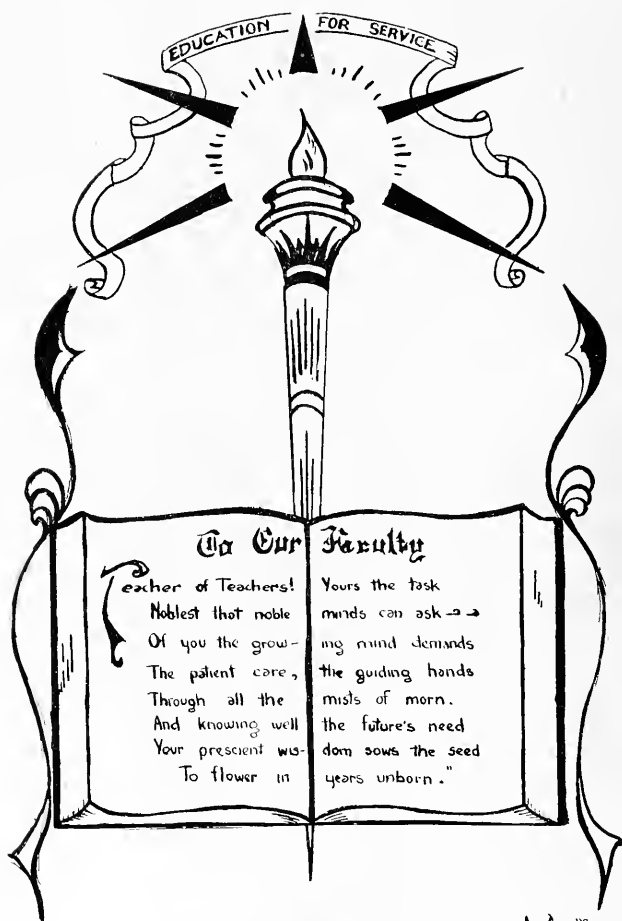 EDUCATION FOR SERVICE
To Our Faculty
Teacher of Teachers! Yours the task
Noblest that noble minds can ask
Of you the grow- ing mind demands
The patient care, the guiding hands
Through all the mists of morn.
And knowing well the future's need
Your prescient wis- dom sows the seed
To flower in years unborn."